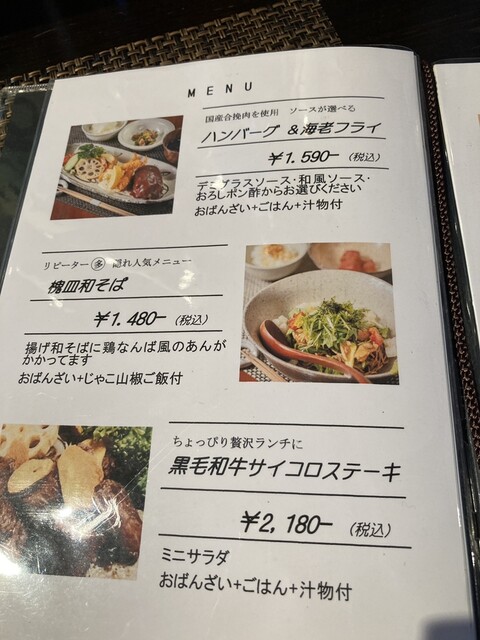 MENU
国産合挽肉を使用 ソースが選べる
ハンバーグ &海老フライ
¥1.590- (税込)
デミグラスソース・和風ソース・
おろしポン酢からお選びください
おばんざい+ごはん+汁物付
リピーター 多 隠れ人気メニュー
皿和そば
¥1.480- (税込)
揚げ和そばに鶏なんば風のあんが
かかってます
おばんざい+じゃこ山椒ご飯付
ちょっぴり贅沢ランチに
黒毛和牛サイコロステーキ
¥2,180- (税込)
ミニサラダ
おばんざい+ごはん+汁物付